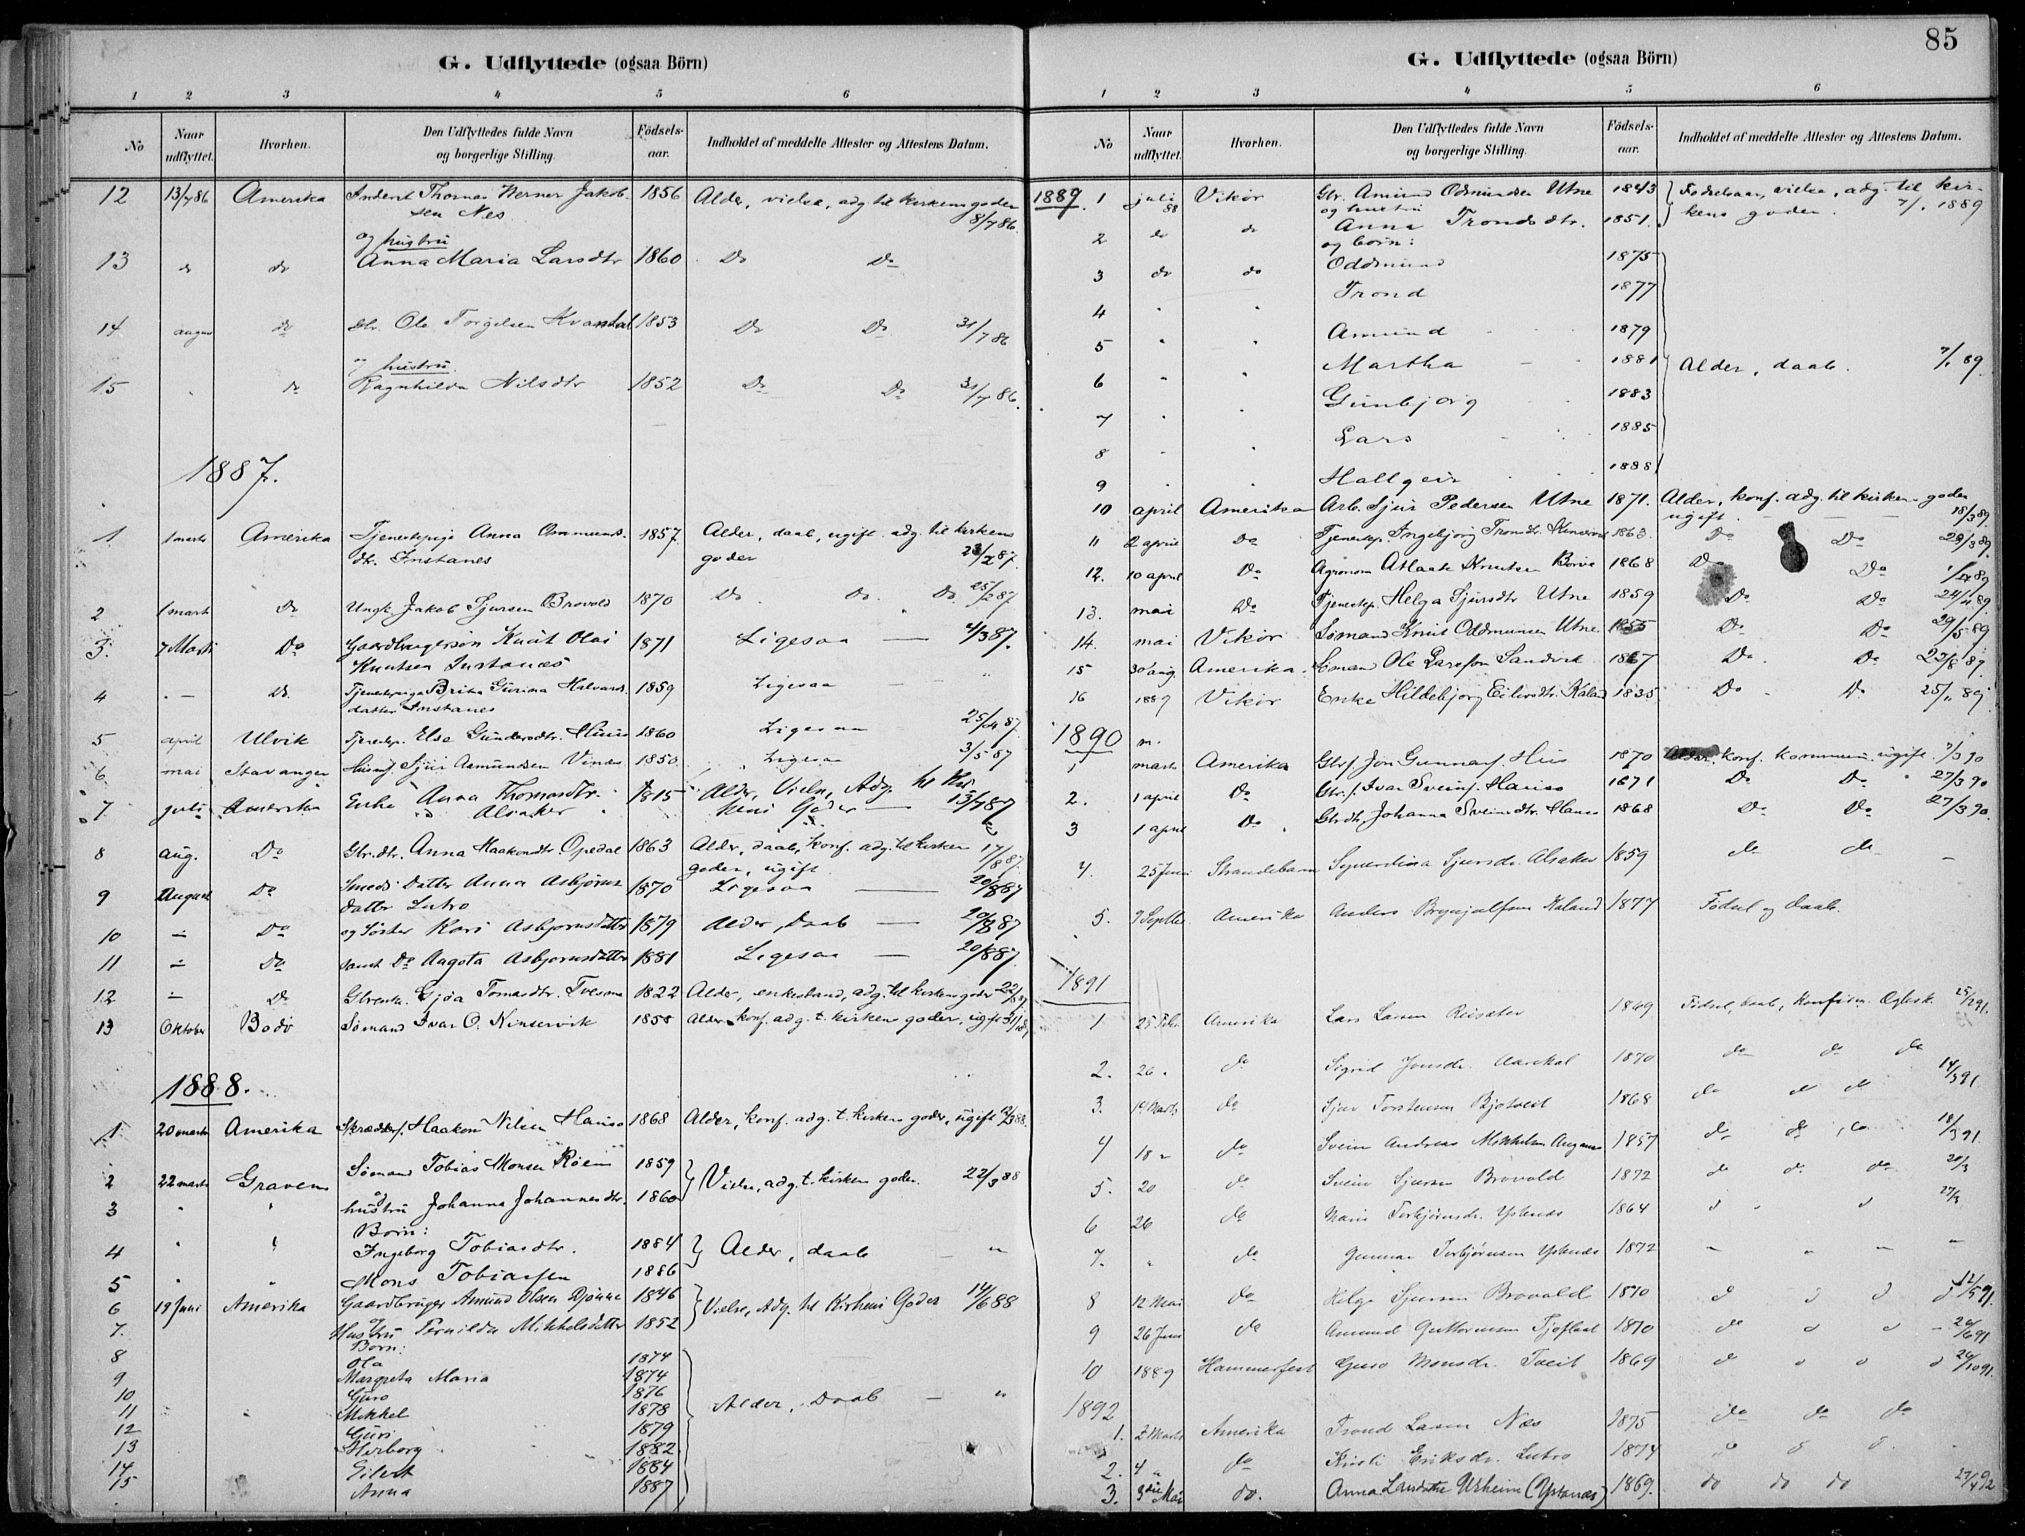 85
G. Udflyttede (ogsaa Börn)
1 2 3 4 5 6
No Naar udflyttet. Hvorhen. Den Udflyttedes fulde Navn og borgerlige Stilling. Födsels-aar. Indholdet af meddelte Attester og Attestens Datum.
12 13/7 86 Amerika Thomas Werner Jakob- 1856 Alder, vielse, adg. til kirkens goder
sen Nes 8/7 86.
og hustru
13 do do Anna Maria Larsdtr 1860 Do Do
14 august do Ole Torgilsen 1853 Do Do 31/7 86
og hustru
15 do Ragnhilda Nilsdtr 1852 Do Do 31/7 86.
1887.
1 1 marts Amerika Tjenestepige Anna Osmunds- 1857. Alder, daab, ugift, adg. til kirkens
dtr. Instanes goder 23/2 87.
2 1 mart Do Ungk. Jakob Sjursen Brovold 1870 Do Do Do 25/2 87
3. 7 Marts Do Gaardbrugersön Knut Olai 1871 Ligesaa — 4/3 87.
Knutsen Instanæs
4 Do. Tjenestepige Brita Gurina Halvards- 1859 Ligesaa — "
datter Instanes
5 april Ulvik Tjenestep. Else Gundersdtr. Huus 1860 Ligesaa 25/4 87.
6 mai Stavanger Sjur Asmundsen Vines 1850. Ligesaa 3/5 87
7 juli Amerika Enke Anna Thomasdtr. 1815 Alder, Vielse, Adg. til Kir-
Alsaker kens Goder — 13/7 87
8 aug. Do Gbr.dtr. Anna Haakondtr. Opedal 1863 Alder, daab, konf. adg. til kirken 17/8 87.
goder, ugift
9 August Do Smeds Datter Anna Asbjörns- 1870 Ligesaa — 20/8 87
datter Lutro
10 – Do og Söster Kari Asbjornsdatter 1879 Alder, Daab — 20/8 87
11 – Do samt Do Aagota Asbjornsdatter 1881 Ligesaa — 20/8 87.
12 – Do Gjöa Tomasdtr. 1822 Alder, enkestand, adg. til kirkens goder 22/8 87
13 Oktober Bodö Sømand Ivar O. Kinservik 1858 Alder, konf. adg. t. kirkens goder, ugift
1888.
1 20 marts Amerika Haakon Nilsen Hauso 1868 Alder, konf. adg. t. kirkens goder, ugift 2/3 88.
2 22 marts Graven Sømand Tobias Monsen Röen 1859 Vielse, adg. t. kirkens goder. 22/3 88
3 " " hustru Johanna Johannesdtr. 1860
Born:
4 " " Ingeborg Tobiasdtr. 1884 Alder, daab "
5 " " Mons Tobiassen 1886
6 19 Juni Amerika Gaardbruger Amund Olsen Djönne 1846 Vielse, Adg. til Kirkens Goder 14/6 88
7. Hustru Pernilda Mikkelsdatter 1852
Born:
8 Ola 1874
9 Margreta Maria 1874
10 Guro 1876 Alder, Daab — "
11 Mikkel 1878
12 Guri 1879
13 Herborg 1882
14 Eilert 1884
15 Anna 1887
G. Udflyttede (ogsaa Börn)
1 2 3 4 5 6
No Naar udflyttet. Hvorhen. Den Udflyttedes fulde Navn og borgerlige Stilling. Födsels-aar. Indholdet af meddelte Attester og Attestens Datum.
1889. 1 juli 88 Vikör Gbr. Amund Odmundsen Utne 1843 Fødselsaar, vielse, adg. til kir-
og hustru kens goder. 7/1 1889
2 do do Anna Trondsdtr. 1851.
og børn:
3 do do Oddmund 1875
4 " " Trond 1877
5 " " Amund 1879
6 " " Martha 1881 Alder, daab. 7/1 89.
7 " " Gunbjorg 1883
8 " " Lars 1885
9 " " Hallgeir 1888
10 april Amerika Arb. Sjur Pedersen Utne 1871. Alder, konf. adg. til kirkens goder
ugift. 18/3 89.
11 2 april Do Tjenestep. Ingebjorg Trondtr. Kinservik 1863. Do Do 28/3 89.
12. 10 april Do Agronom Aslak Knutsen Börve 1868 Do Do 1/4 89
13. mai Do Tjenestep. Helga Sjursdtr Utne 1859 Do Do 24/4 89.
14. mai Vikör Sømand Knut Oddmunsen Utne 1855 Do Do 29/5 89
15 30 aug. Amerika. Sömand Ole Larsson Sandvik 1867 Do. Do 23/8 89.
16 1889 Vikör Enke Hildebjorg Eilevsdtr. Kaland 1835 Do Do 25/11 89.
1890
1 marts Amerika Jon Gunnars. Hus 1870 Alder, konf. kommun. ugift 7/3 90
2. 1 april Do Ivar Sveins. Hauso 1871 Do Do 27/3 90
3 1 april Do Johanna Sveindtr. Hauso 1868 Do Do 27/3 90.
4. 25 Juni Strandebarm Sjursdr. Alsaker 1859 do do —
5. 9 Septbr. Amerika Anders Brynjulfsen Kaland 1877 Fødsel og daab.
1891
1 25 Febr. Amerika Lars Larsen Reisæter 1869 Fødsel, daab, konfirm. 25/2 91.
2. 26 " do Sigrid Jonsdr. Aarekol 1870 do do do
3. 14 Marts do Sjur Torstensen Bjotveit 1868 do do do 14/3 91
4 18 " do Svein Andreas Mikkelsen 1857 do do do 18/3 91
5. 20 do Svein Sjursen Brovold 1872 do do do 20/3
6 26 do Mari Torbjörnsdr. Ystenæs 1864 do " do 27/3
7. " do Gunnar Torbjørnsen Ystenæs 1872 " " " "
8 12 Mai do Helge Sjursen Brovold 1870 do do do do 12/5 91.
9 26 Juni do Amund Guttormsen Tjoflaat 1870 do do do 26/6 91
10 1889 Hammerfest Guro Monsdr. Tveit 1869 do do do do 26/10 91.
1892
1. 2 Marts Amerika Trond Larsen Næs 1875 do do do
2. 4 " do Kristi Eriksdr. Lutro 1874 do do do
3. 3die Mai do. Anna Larsdtr Ursheim (Ystanæs) 1869. do do do 27/4 92